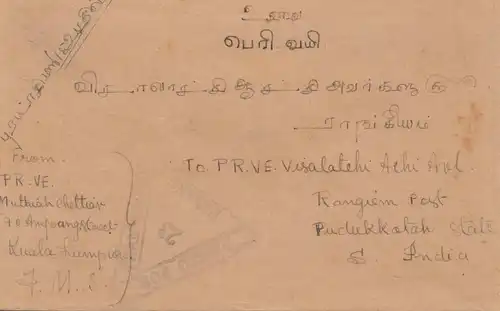 உ
பெரி வயி
விசாலாட்சி ஆச்சி அவர்களுக்கு
ராங்கியம்
From
P R - V E.
Muthiah Chettiar
70 Ampang Street
Kuala Lumpur
F. M. S.
To P R. V E. Visalatchi Achi Avl
Rangiem Post
Pudukkotah State
S. India